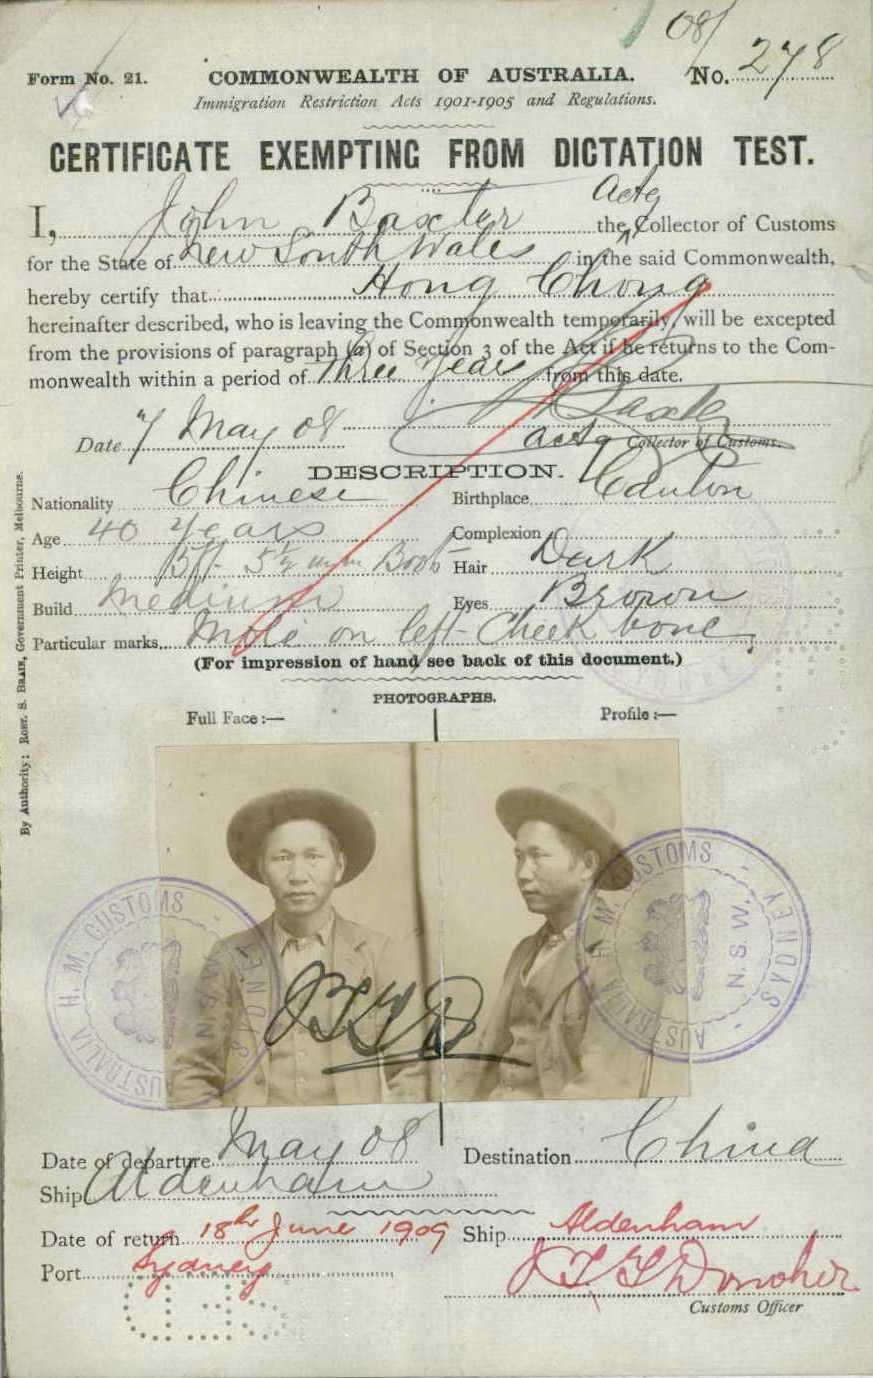 08/
Form No. 21. COMMONWEALTH OF AUSTRALIA. No. 278
Immigration Restriction Acts 1901-1905 and Regulations.
CERTIFICATE EXEMPTING FROM DICTATION TEST.
I, John Baxter the Actg Collector of Customs
for the State of New South Wales in the said Commonwealth,
hereby certify that Hong Chong
hereinafter described, who is leaving the Commonwealth temporarily, will be excepted
from the provisions of paragraph (a) of Section 3 of the Act if he returns to the Com-
monwealth within a period of Three Years from this date.
J Baxter
Date 7 May 08 Actg Collector of Customs.
DESCRIPTION.
Nationality Chinese Birthplace Canton
Age 40 years Complexion
Height 5ft 5½ in Boots Hair Dark
Build Medium Eyes Brown
Particular marks Mole on left cheek bone
(For impression of hand see back of this document.)
PHOTOGRAPHS.
Full Face :— Profile :—
AUSTRALIA H. M. CUSTOMS SYDNEY N.S.W.
AUSTRALIA H. M. CUSTOMS SYDNEY N.S.W.
JTGD
Date of departure May 08 Destination China
Ship Aldenham
Date of return 18th June 1909 Ship Aldenham
Port Sydney J T G Donoher
Customs Officer
By Authority: ROBT. S. BRAIN, Government Printer, Melbourne.